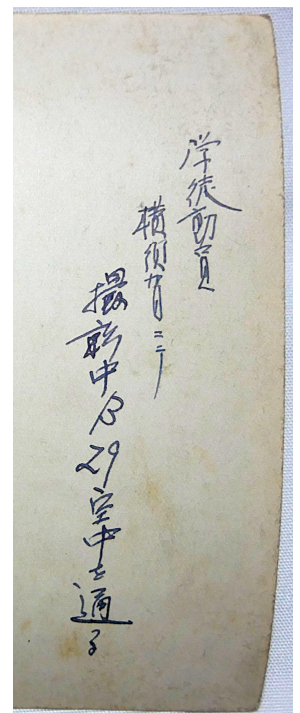 学徒動員
横須賀ニテ
撮影中B29空中を通る